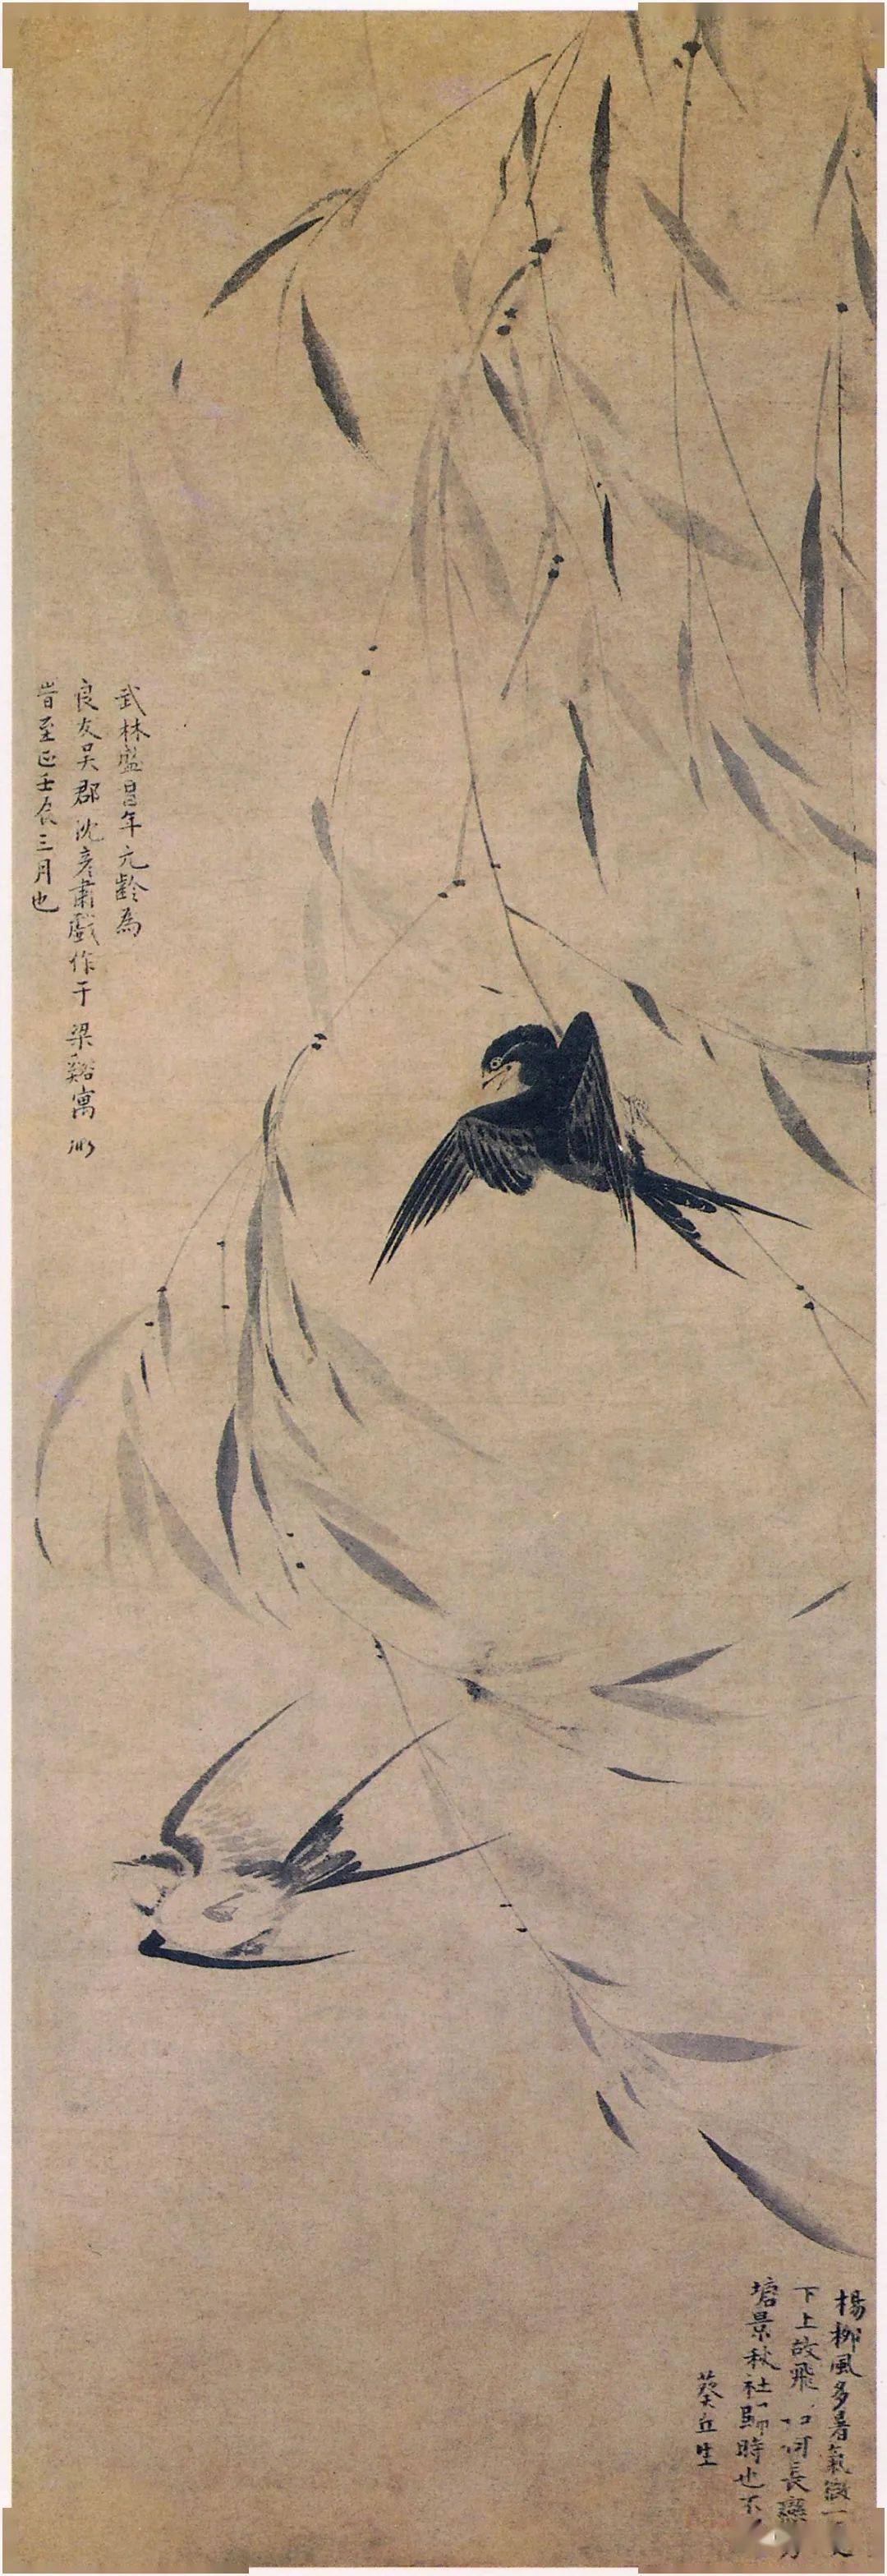 武林盛昌年元齡為
良友吳郡沈彥肅戲作于梁谿寓所
旹至正壬辰三月也
楊柳風多暑氣微一
下上故飛如何長
塘景秋社歸時也不
葵丘生